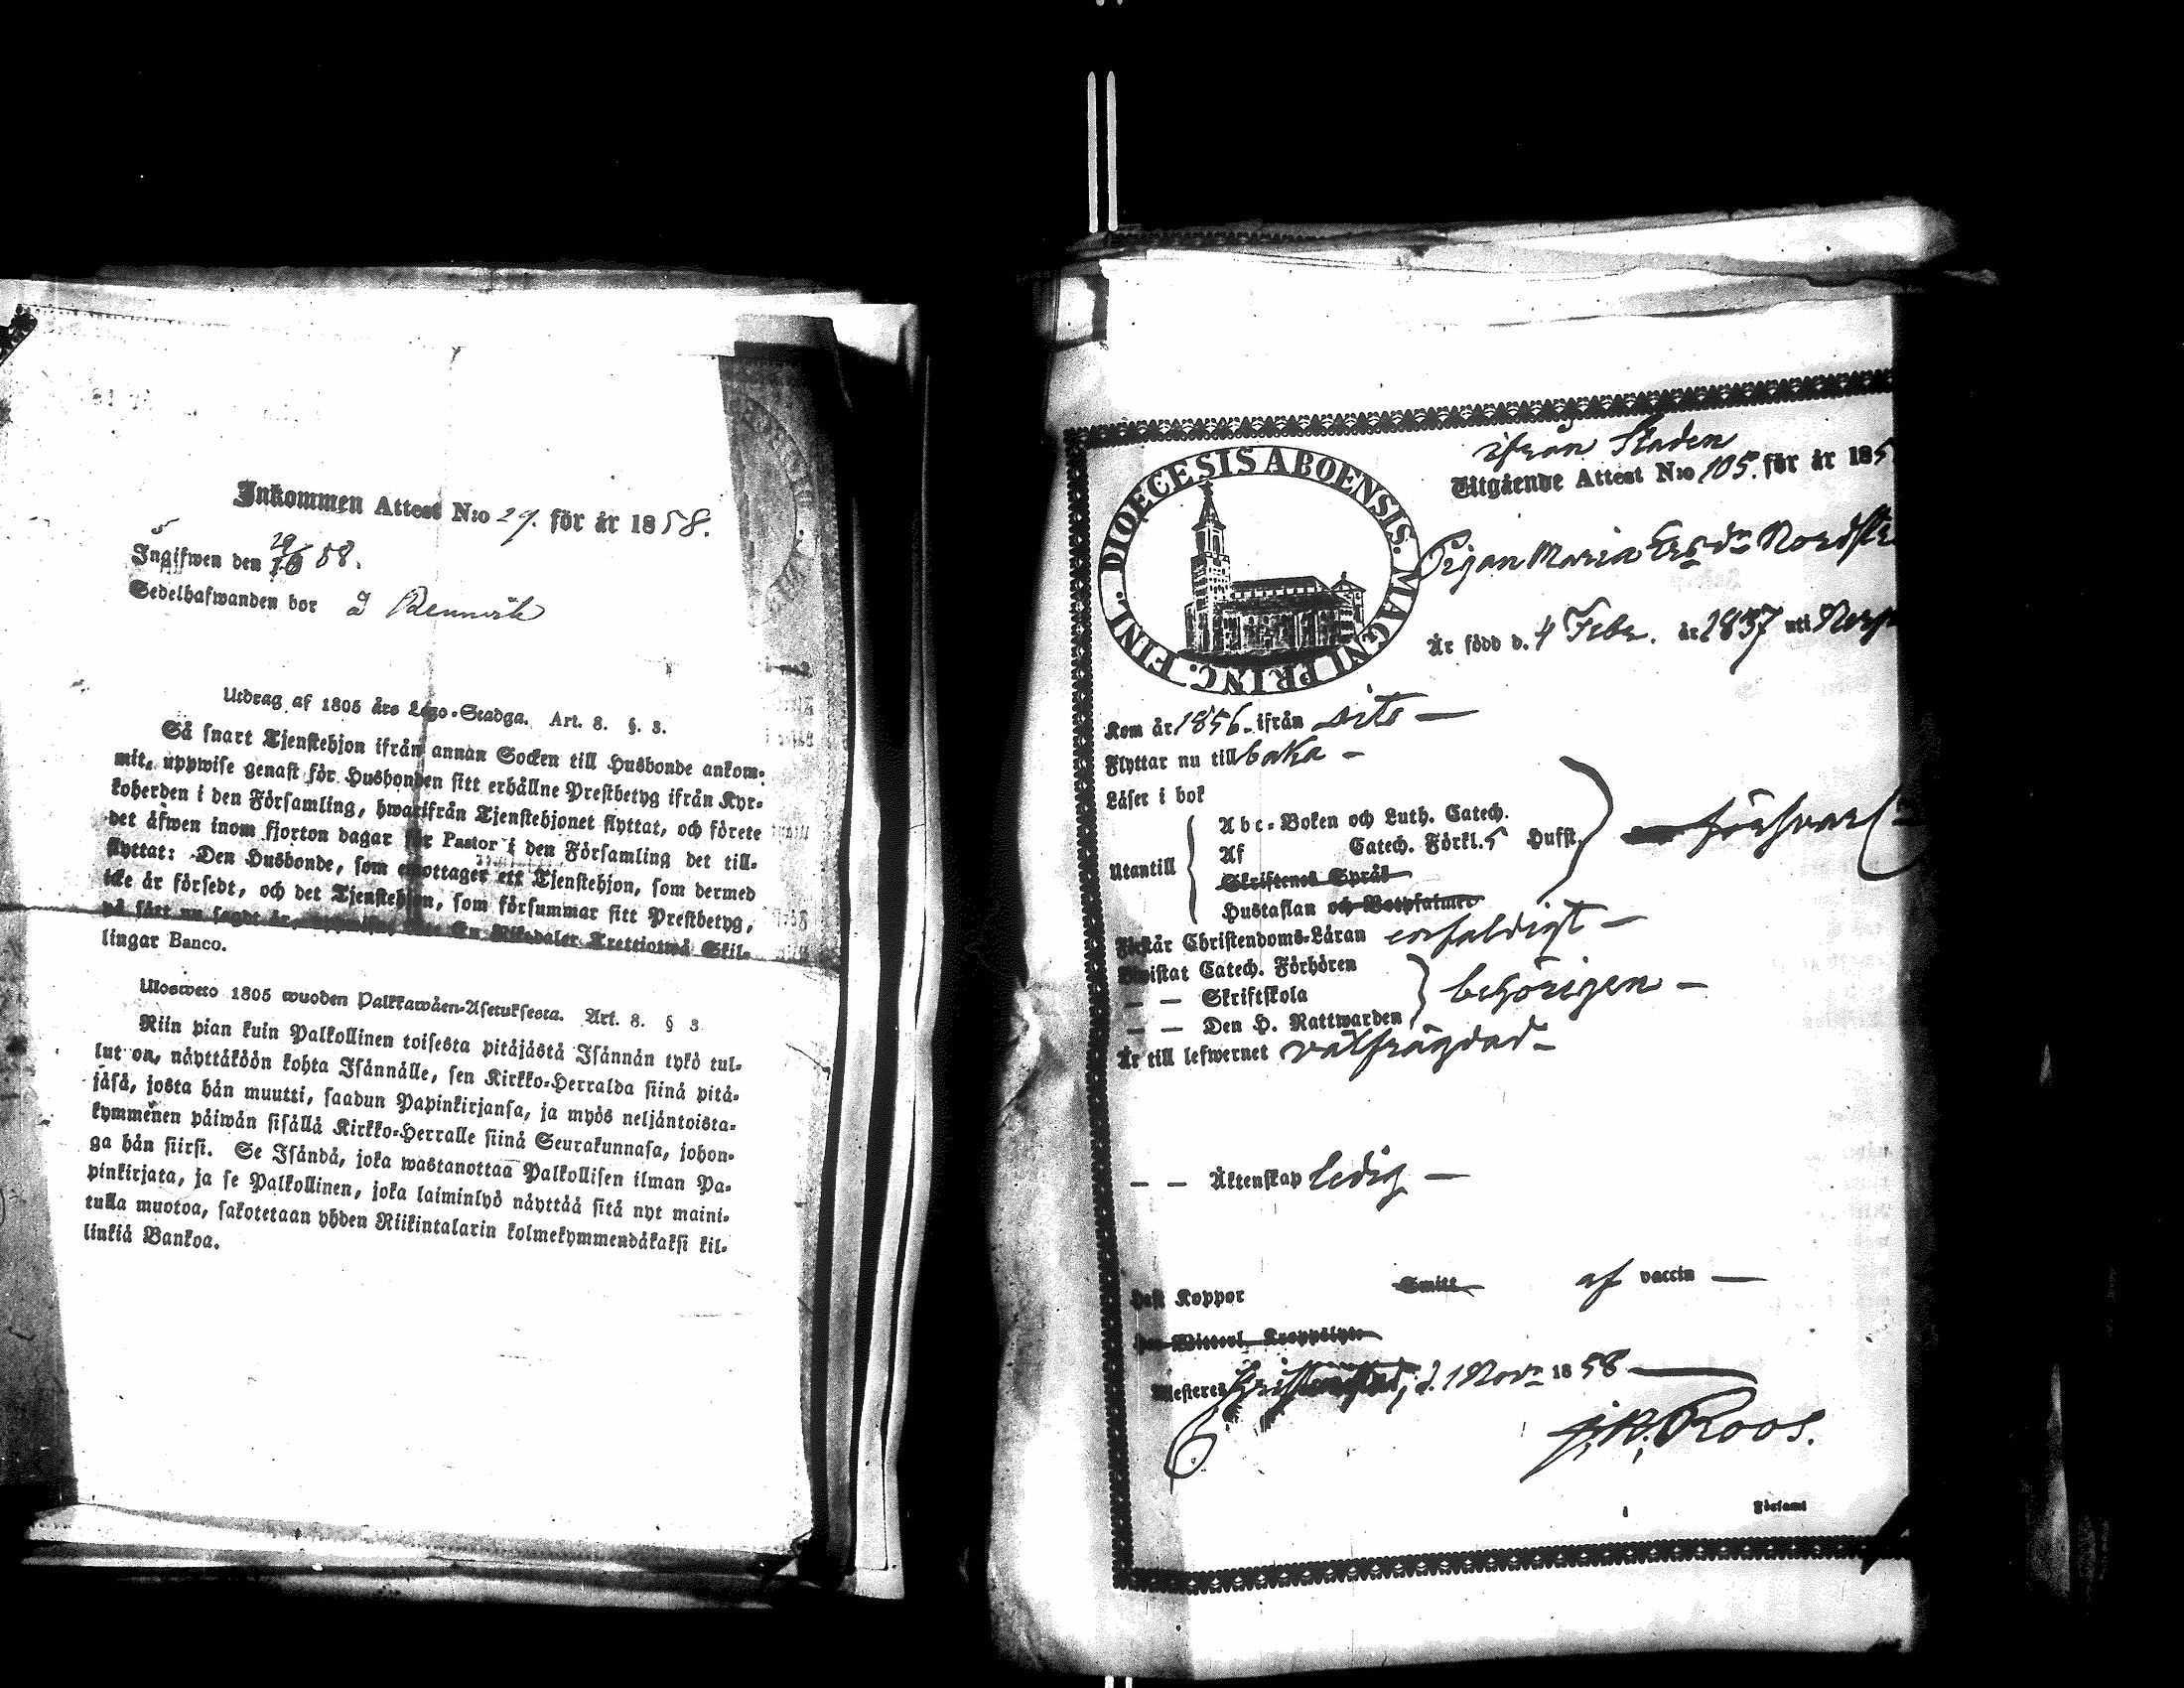 Inkommen Attest N:o 29. för år 1858.
Ingifwen den 29/10 58.
Sedelhafwanden bor I
Utdrag af 1805 års Lego-Stadga. Art. 8. §. 3.
Så snart Tjenstehjon ifrån annan Socken till Husbonde ankom-
mit, uppwise genast för Husbonden sitt erhållne Prestbetyg ifrån Kyr-
koherden i den Församling, hwarifrån Tjenstehjonet flyttat, och förete
det äfwen inom fjorton dagar för Pastor i den Församling det till-
flyttat: Den Husbonde, som emottager ett Tjenstehjon, som dermed
icke är försedt, och det Tjenstehjon, som försummar sitt Prestbetyg,
på sätt nu sagdt är, En Riksdaler Trettiotwå Skil-
lingar Banco.
Ulosweto 1805 wuoden Palkkawäen-Asetuksesta. Art. 8. § 3
Niin pian kuin Palkollinen toisesta pitäjästä Isännän tykö tul-
lut on, näyttäköön kohta Isännälle, sen Kirkko-Herralda siinä pitä-
jäsä, josta hän muutti, saadun Papinkirjansa, ja myös neljäntoista-
kymmenen päiwän sisällä Kirkko-Herralle siinä Seurakunnasa, johon-
ga hän siirsi. Se Isändä, joka wastanottaa Palkollisen ilman Pa-
pinkirjata, ja se Palkollinen, joka laiminlyö näyttää sitä nyt maini-
tulla muotoa, sakotetaan yhden Riikintalarin kolmekymmendäkaksi kil-
linkiä Bankoa.
DIOECESIS ABOENSIS. MAGNI PRINC. FINL.
ifrån Staden
Utgående Attest N:o 105. för år 185
Maria
Är född d. 4 Febr. år 1837 uti
Kom år 1856. ifrån dito —
Flyttar nu till baka —
Läser i bok
Utantill
Abc-Boken och Luth. Catech.
Af Catech. Förkl. 5 Hufst.
Skriftenes Språk
Hustaflan och Botpsalmer
Förstår Christendoms-Läran enfaldigt —
Bewistat Catech. Förhören
— — Skriftskola
— — Den H. Nattwarden
behörigen —
Är till lefwernet välfrägdad —
— — Äktenskap ledig —
Haft Koppor Smitt af vaccin —
Kroppslyte
Attesterar d. 1 Nov. 1858 —
Roos.
Församl